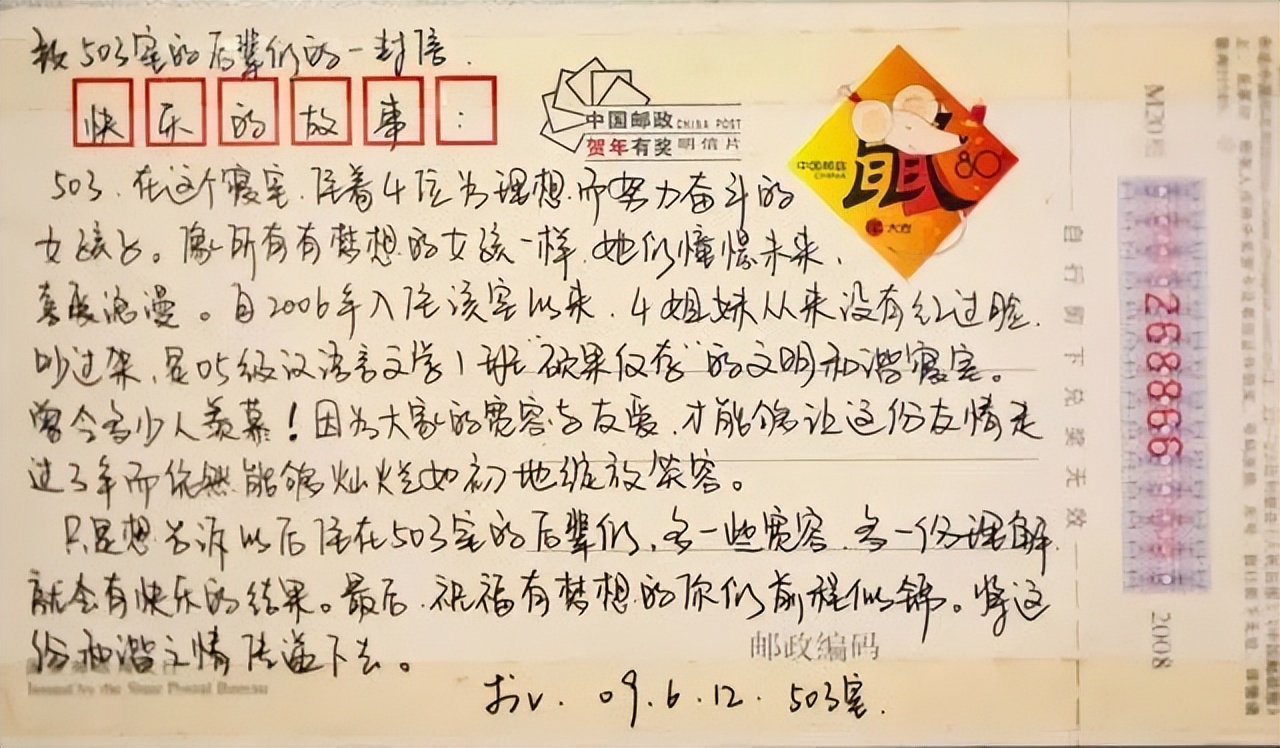 致503室的后辈们的一封信.
快乐的故事:
中国邮政 CHINA POST
贺年有奖明信片
中国邮政
CHINA
鼠
80
503.在这个寝室.住着4位为理想而努力奋斗的
女孩子。像所有有梦想的女孩一样.她们憧憬未来,
喜爱浪漫。自2006年入住该室以来.4姐妹从来没有红过脸.
吵过架,是05级汉语言文学1班"硕果仅存"的文明和谐寝室。
曾令多少人羡慕!因为大家的宽容与友爱.才能够让这份友情走
过3年而依然能够灿烂如初地绽放笑容。
只是想告诉以后住在503室的后辈们,多一些宽容.多一份理解.
就会有快乐的结果。最后.祝福有梦想的你们前程似锦。将这
份和谐之情传递下去。
邮政编码
Issued by the State Postal Bureau
09.6.12. 503室.
自行剪下兑奖无效
268866
2008